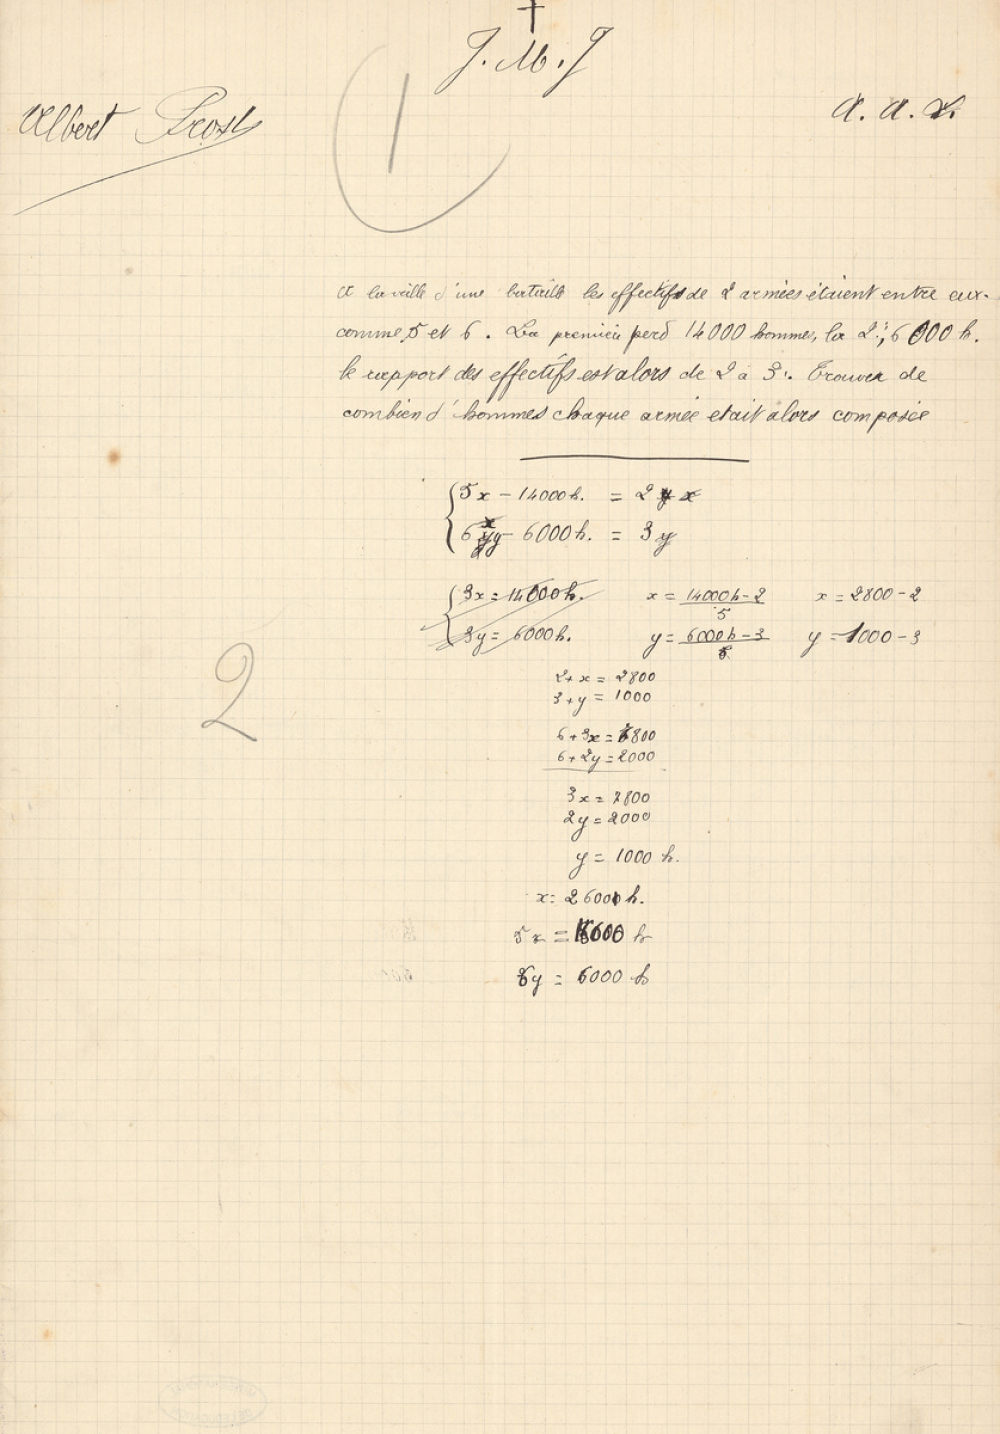 J. M. J
Albert
1
A. A.
A la veille d'une bataille les effectifs de 2 armées étaient entre eux
comme 5 et 6. La première perd 14000 hommes, la 2e, 6000 h.
le rapport des effectifs est alors de 2 à 3. Trouver de
combien d'hommes chaque armée etait alors composée
5x - 14000h. = 2 x
6 y - 6000h. = 3y
3x = 14000h. x = 14000h-2 / 5 x = 2800-2
3y = 6000h. y = 6000h-3 / 6 y = 1000-3
2
2+x = 2800
3+y = 1000
6+3x = 7800
6+2y = 2000
3x = 7800
2y = 2000
y = 1000 h.
x = 2600 h.
5x = h
6y = 6000 h